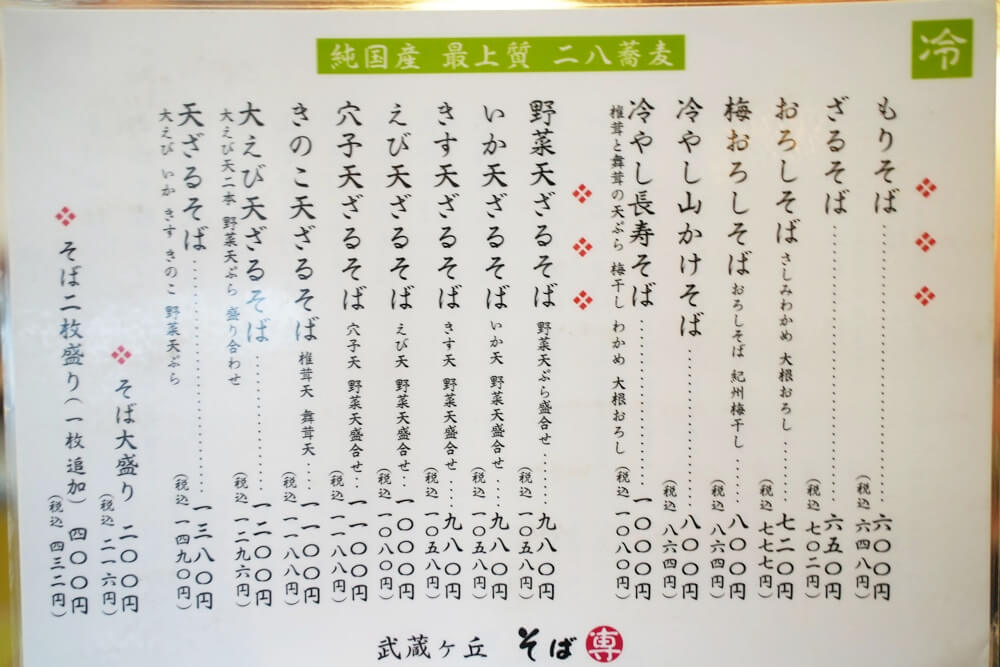 冷
純国産 最上質 二八蕎麦
もりそば 六〇〇円
(税込 六四八円)
ざるそば 六五〇円
(税込 七〇二円)
おろしそば さしみわかめ 大根おろし 七二〇円
(税込 七七七円)
梅おろしそば おろしそば 紀州梅干し 八〇〇円
(税込 八六四円)
冷やし山かけそば 八〇〇円
(税込 八六四円)
冷やし長寿そば 一〇〇〇円
椎茸と舞茸の天ぷら 梅干し わかめ 大根おろし (税込 一〇八〇円)
野菜天ざるそば 野菜天ぷら盛合せ 九八〇円
(税込 一〇五八円)
いか天ざるそば いか天 野菜天盛合せ 九八〇円
(税込 一〇五八円)
きす天ざるそば きす天 野菜天盛合せ 九八〇円
(税込 一〇五八円)
えび天ざるそば えび天 野菜天盛合せ 一〇〇〇円
(税込 一〇八〇円)
穴子天ざるそば 穴子天 野菜天盛合せ 一一〇〇円
(税込 一一八八円)
きのこ天ざるそば 椎茸天 舞茸天 一一〇〇円
(税込 一一八八円)
大えび天ざるそば 一二〇〇円
大えび天二本 野菜天ぷら 盛り合わせ (税込 一二九六円)
天ざるそば 一三八〇円
大えび いか きす きのこ 野菜天ぷら (税込 一四九〇円)
そば大盛り 二〇〇円
(税込 二一六円)
そば二枚盛り(一枚 追加) 四〇〇円
(税込 四三二円)
武蔵ヶ丘 そば 専